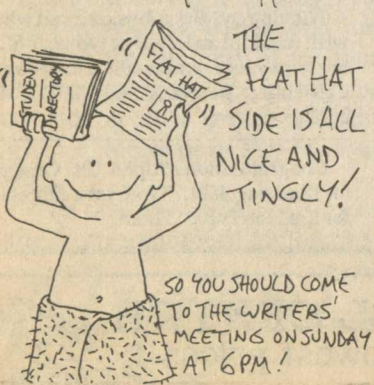 STUDENT
DIRECTORY
FLAT HAT
THE
FLAT HAT
SIDE IS ALL
NICE AND
TINGLY!
SO YOU SHOULD COME
TO THE WRITERS'
MEETING ON SUNDAY
AT 6PM!